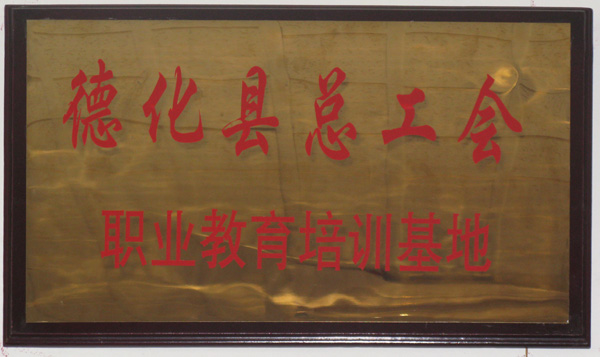 德化县总工会
职业教育培训基地